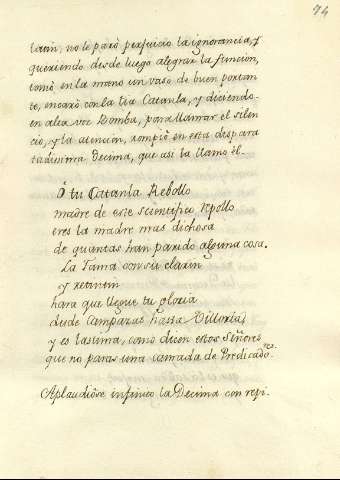 74
latin, no le paró perjuicio la ignorancia, y
queriendo desde luego alegrar la funcion,
tomó en la mano un vaso de buen portan-
te, encaró con la tia Catanla, y diciendo
en alta voz Bomba, para llamar el silen
cio, y la atencion, rompió en esta dispara
tadisima Decima, que asi la llamo él.
O tu Catanla Rebollo
madre de este scientifico Apollo
eres la madre mas dichosa
de quantas han parido alguna cosa.
La Fama con su clarin
y retintin
hara que llegue tu gloria
desde Campazas hasta Villoria,
y es lastima, como dicen estos Señores
que no paras una camada de Predicadores.
Aplaudióse infinito la Decima con repi-